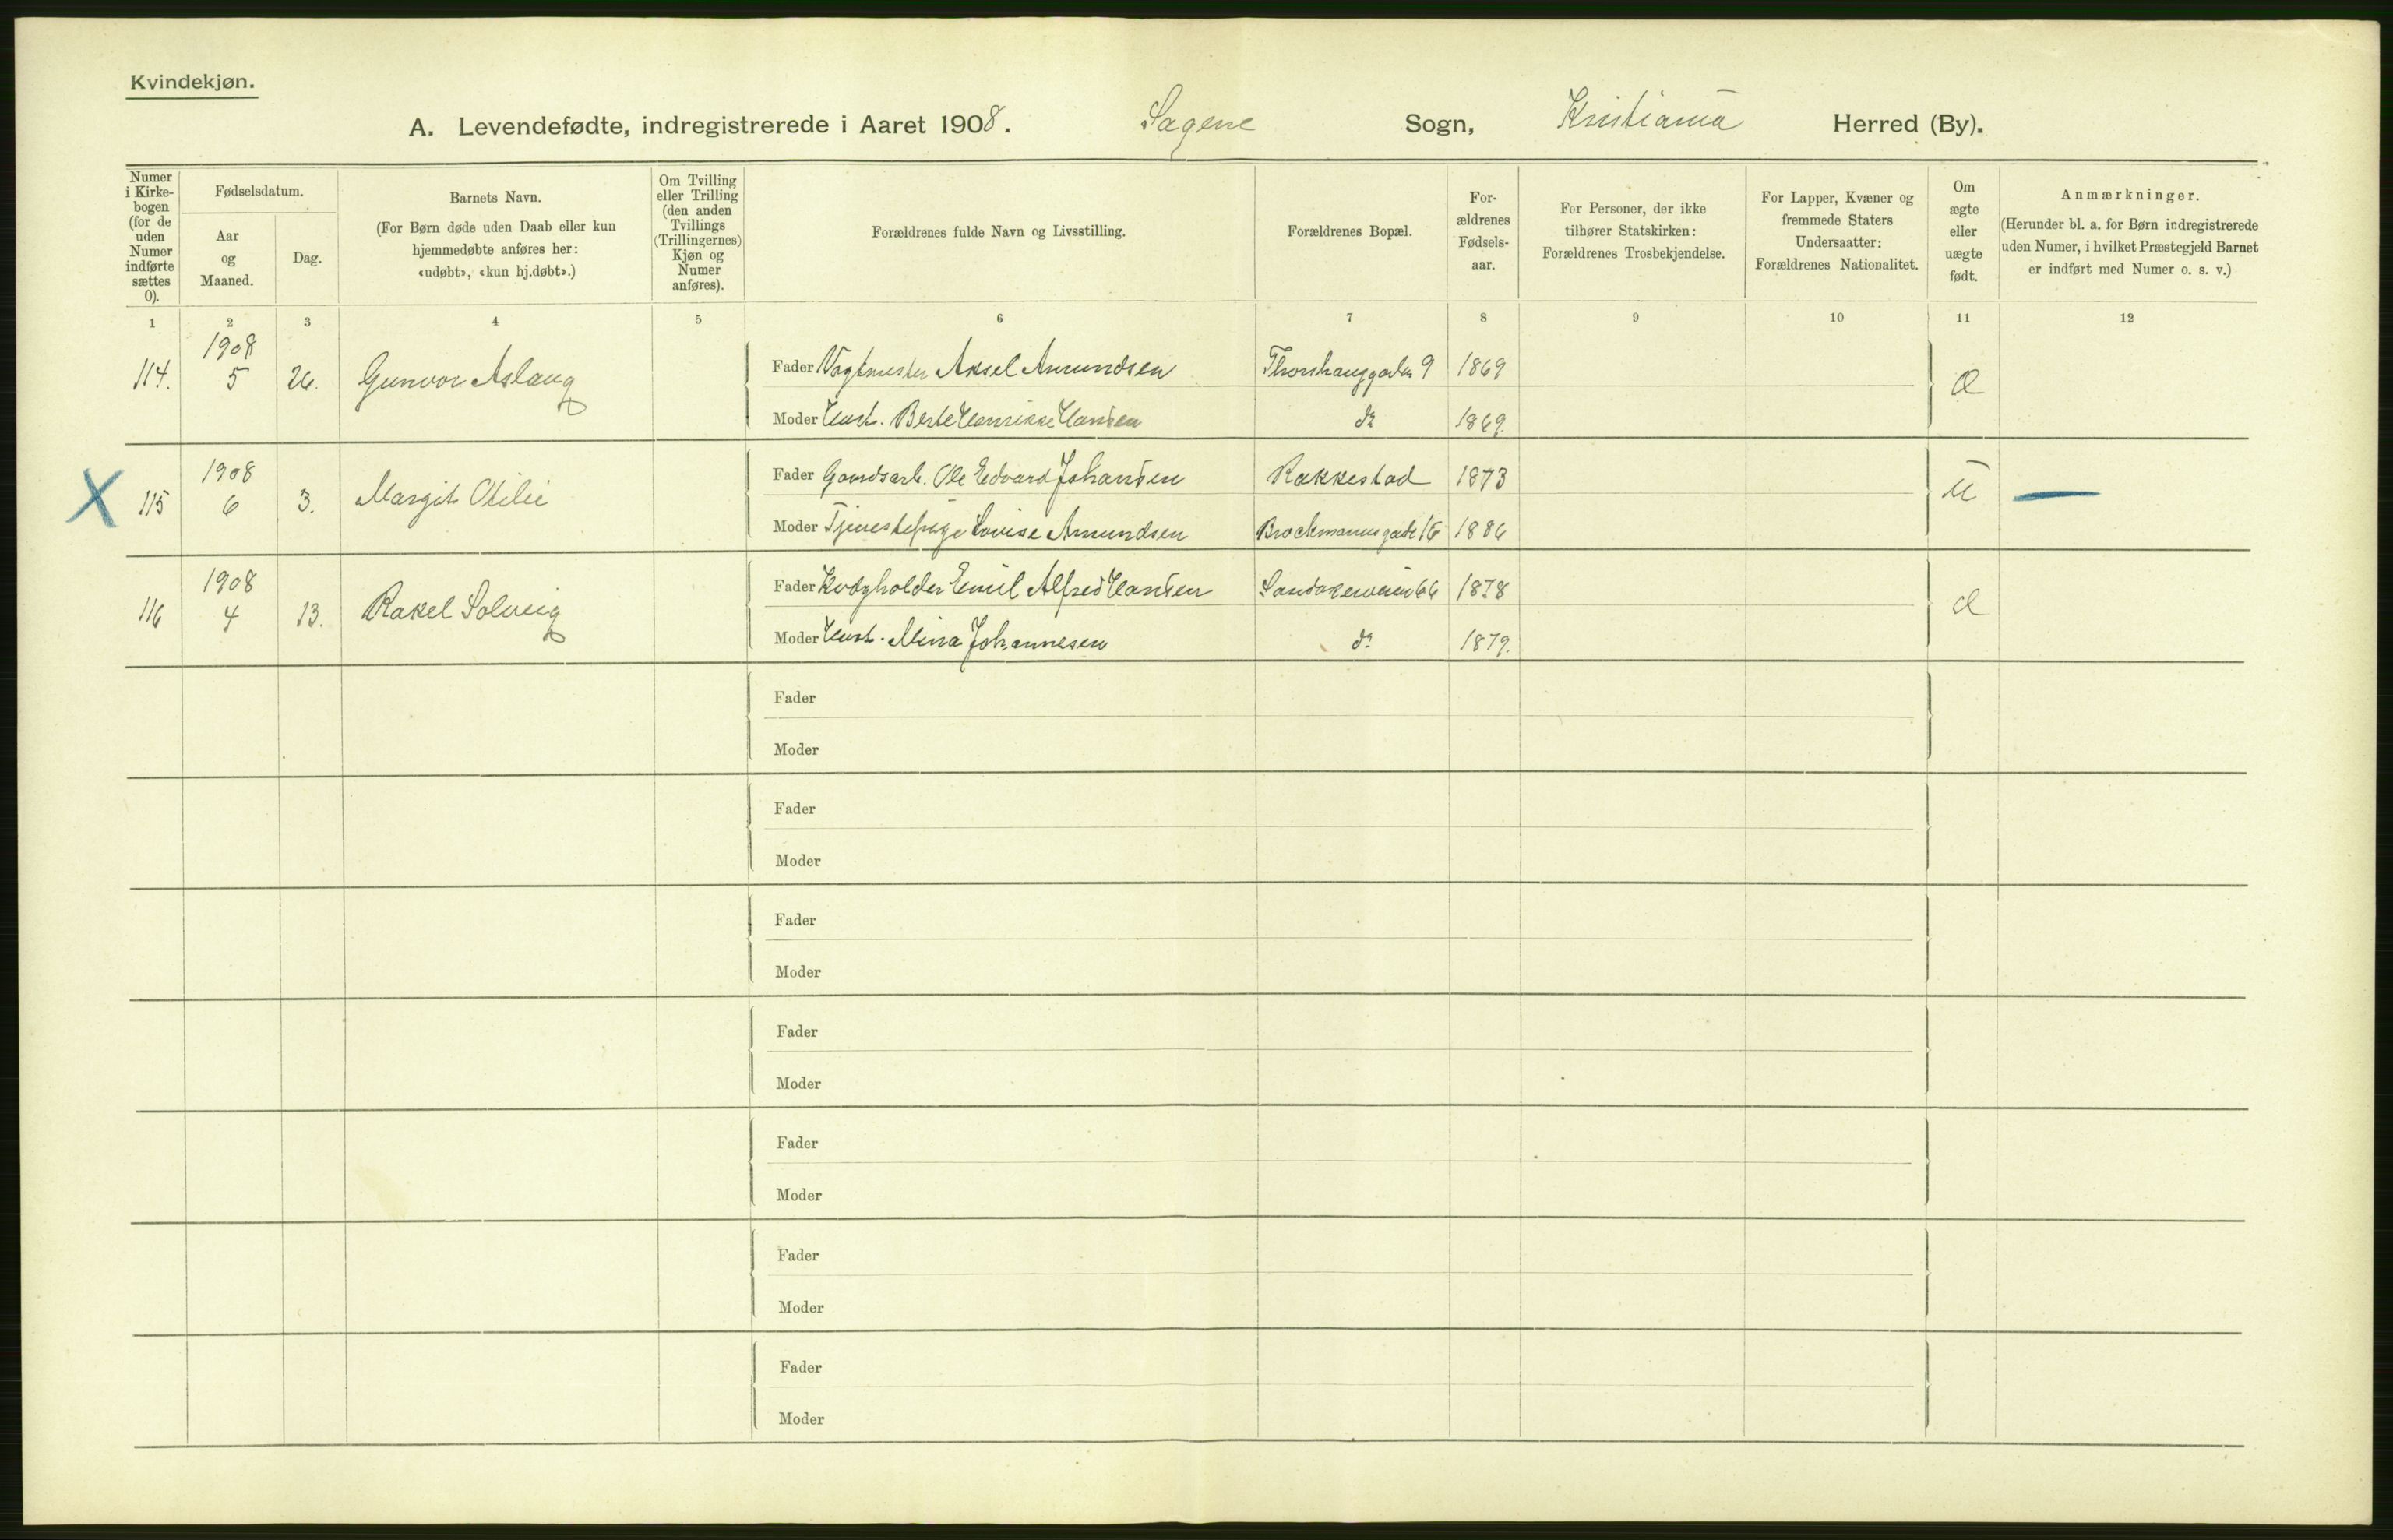 Kvindekjøn.
A. Levendefødte, indregistrerede i Aaret 1908. Sagene Sogn, Kristiania Herred (By).
Numer i Kirkebogen (for de uden Numer indførte sættes 0).
Fødselsdatum.
Aar og Maaned.
Dag.
Barnets Navn.
(For Børn døde uden Daab eller kun hjemmedøbte anføres her: «udøbt», «kun hj.døbt».)
Om Tvilling eller Trilling (den anden Tvillings (Trillingernes) Kjøn og Numer anføres).
Forældrenes fulde Navn og Livsstilling.
Forældrenes Bopæl.
Forældrenes Fødselsaar.
For Personer, der ikke tilhører Statskirken: Forældrenes Trosbekjendelse.
For Lapper, Kvæner og fremmede Staters Undersaatter: Forældrenes Nationalitet.
Om ægte eller uægte født.
Anmærkninger.
(Herunder bl. a. for Børn indregistrerede uden Numer, i hvilket Præstegjeld Barnet er indført med Numer o. s. v.)
1 2 3 4 5 6 7 8 9 10 11 12
114. 1908 5 26. Gunvor Aslaug
Fader Vogtmester Aksel Amundsen Thorshauggaden 9 1869 Æ
Moder Hust. Berte Henrikke Hansen do 1869.
X 115 1908 6 3. Margit Otilie
Fader Gaardsarb. Ole Edvard Johansen Rakkestad 1873 U —
Moder Tjenestepige Lovise Amundsen Brockmannsgade 16 1886
116 1908 4 13. Rakel Solveig
Fader Kvægholder Emil Alfred Hansen Sandakerveien 66 1878 Æ
Moder Hust. Mina Johannesen do 1879.
Fader
Moder
Fader
Moder
Fader
Moder
Fader
Moder
Fader
Moder
Fader
Moder
Fader
Moder